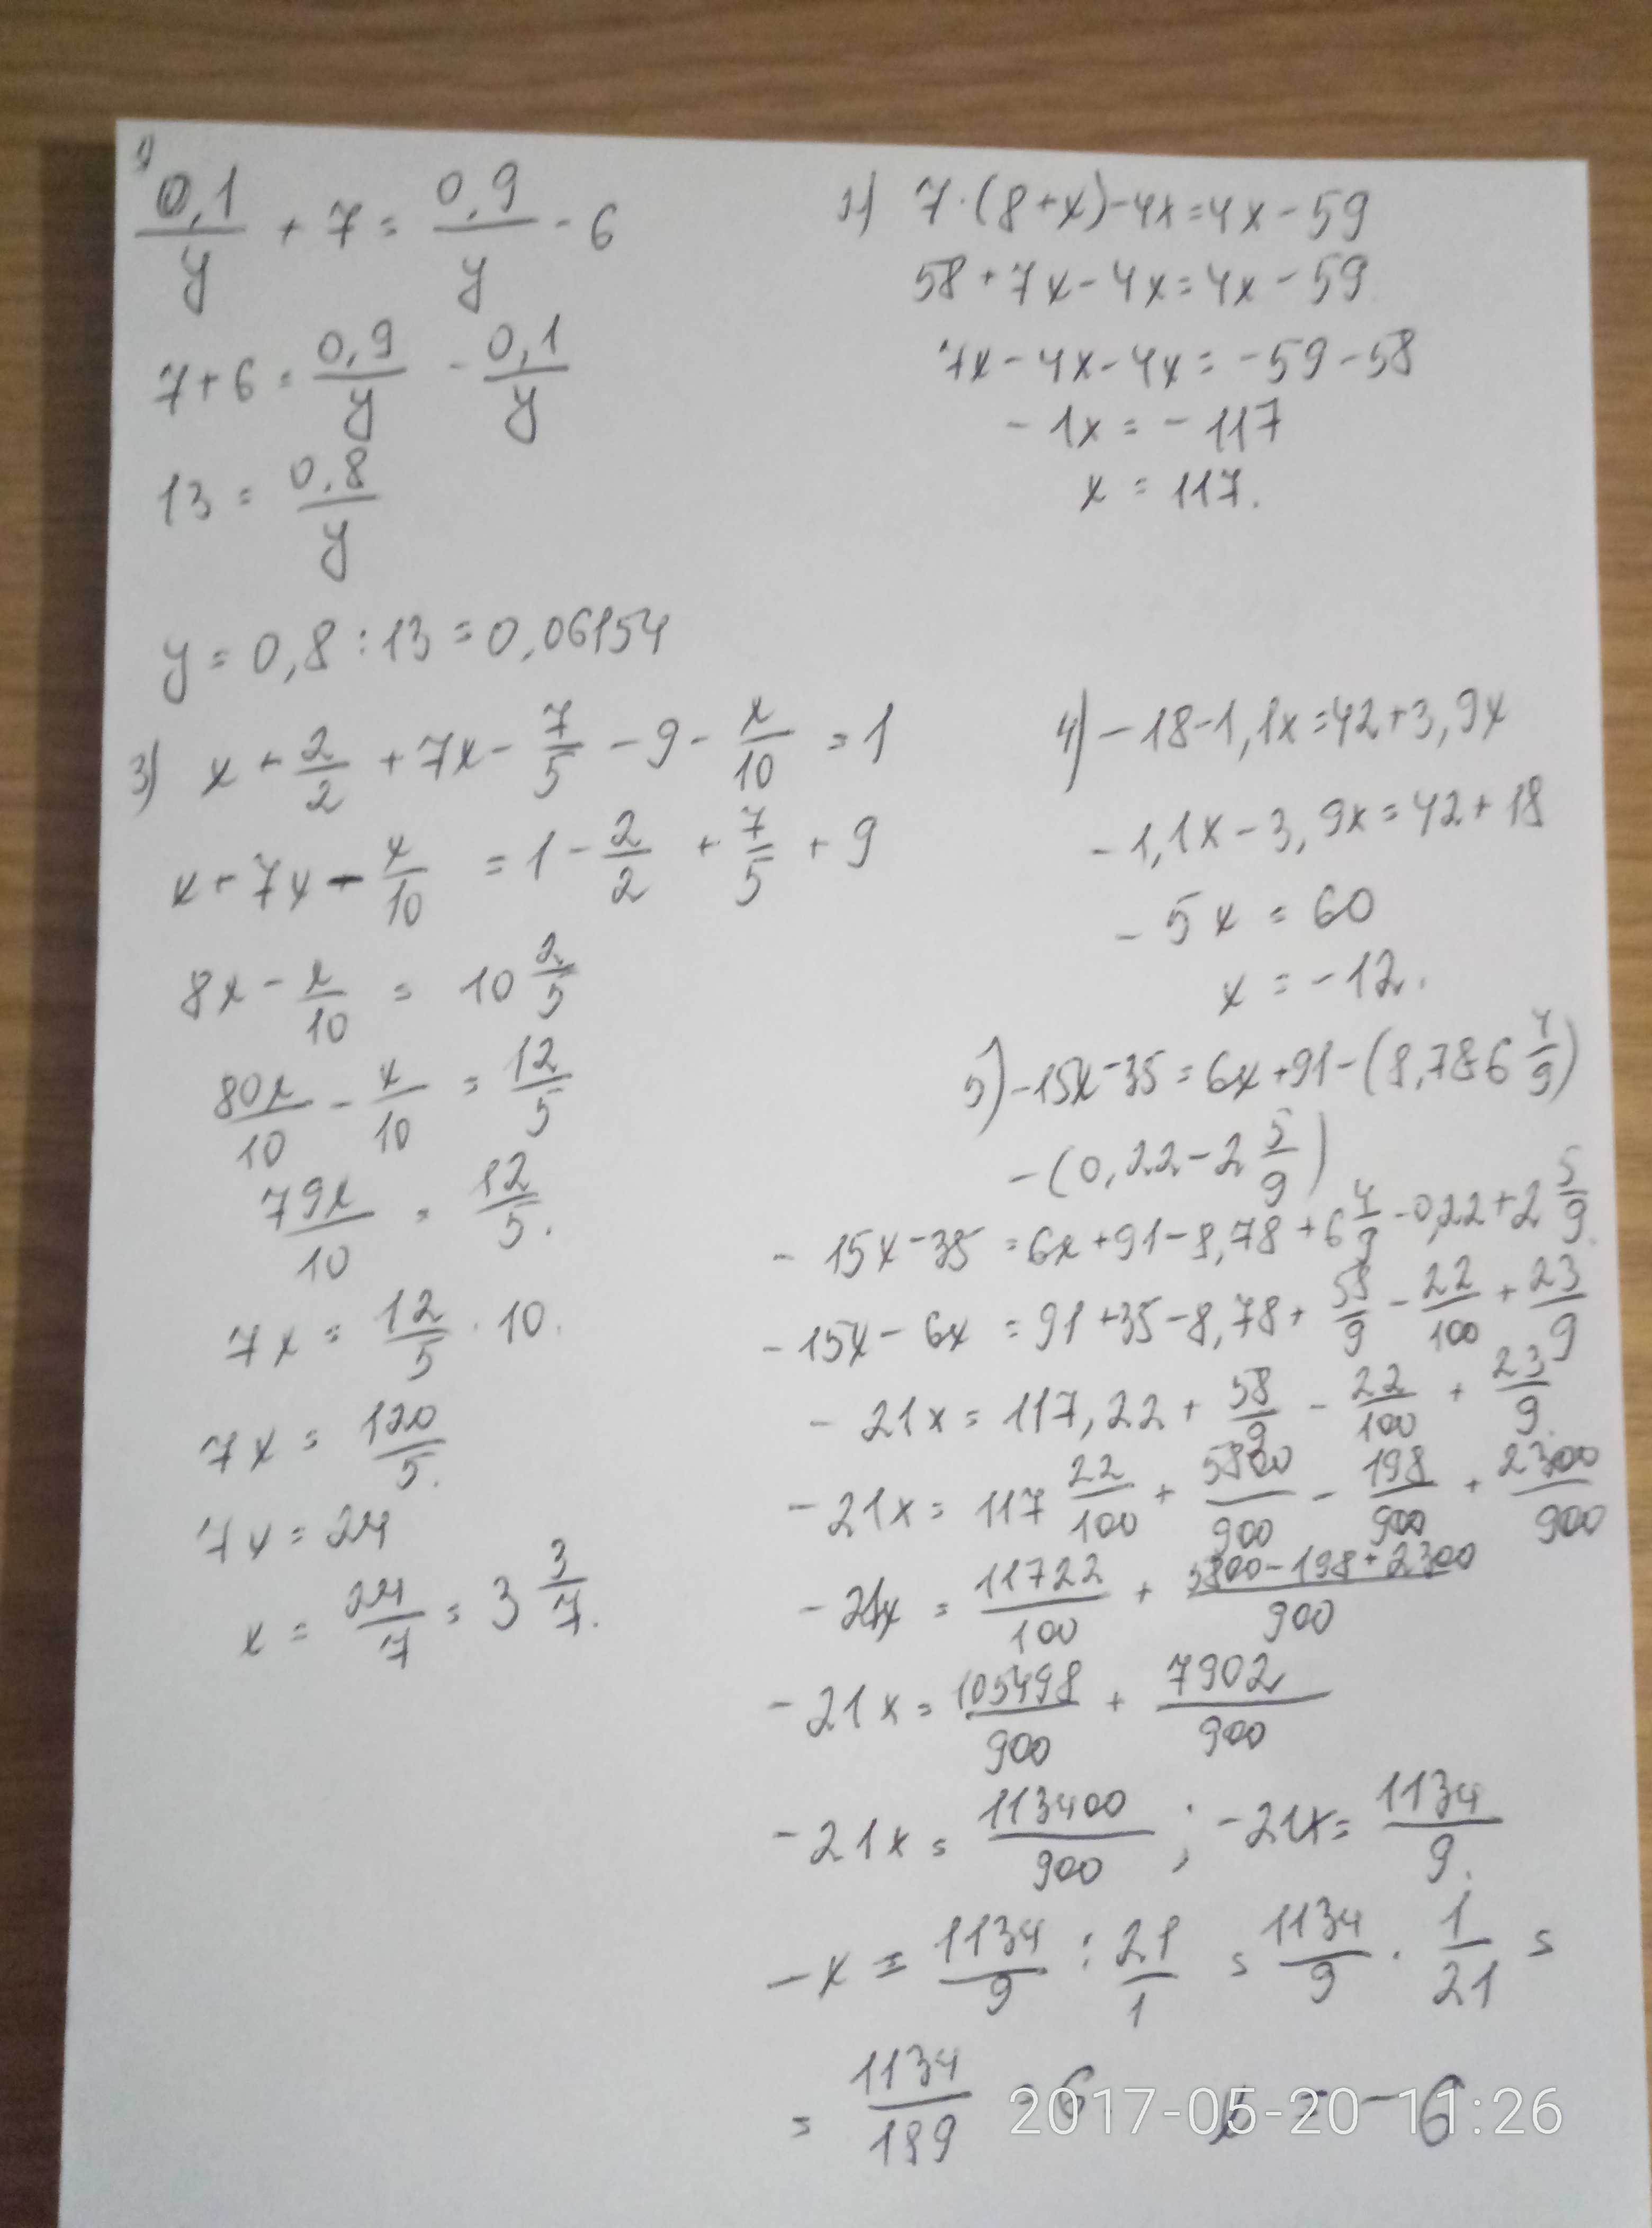 1)
0,1/y + 7 = 0,9/y - 6
7 + 6 = 0,9/y - 0,1/y
13 = 0,8/y
y = 0,8 : 13 = 0,06154
2) 7·(8+x)-4x=4x-59
58+7x-4x=4x-59
7x-4x-4x=-59-58
-1x=-117
x=117.
3) x + 2/2 + 7x - 7/5 - 9 - x/10 = 1
x + 7x - x/10 = 1 - 2/2 + 7/5 + 9
8x - x/10 = 10 2/5
80x/10 - x/10 = 12/5
79x/10 = 12/5.
7x = 12/5 · 10.
7x = 120/5.
7x = 24
x = 24/7 = 3 3/7.
4) -18-1,1x=42+3,9x
-1,1x-3,9x=42+18
-5x=60
x=-12.
5) -15x-35=6x+91-(8,78-6 4/9)
-(0,22-2 5/9)
-15x-35=6x+91-8,78+6 4/9-0,22+2 5/9.
-15x-6x=91+35-8,78+58/9-22/100+23/9
-21x=117,22+58/9-22/100+23/9.
-21x=117 22/100+5800/900-198/900+2300/900
-21x=11722/100+5800-198+2300/900
-21x=105498/900+7902/900
-21x=113400/900; -21x=1134/9.
-x=1134/9:21/1=1134/9·1/21=
=1134/189=6 x=-6
2017-05-20 11:26